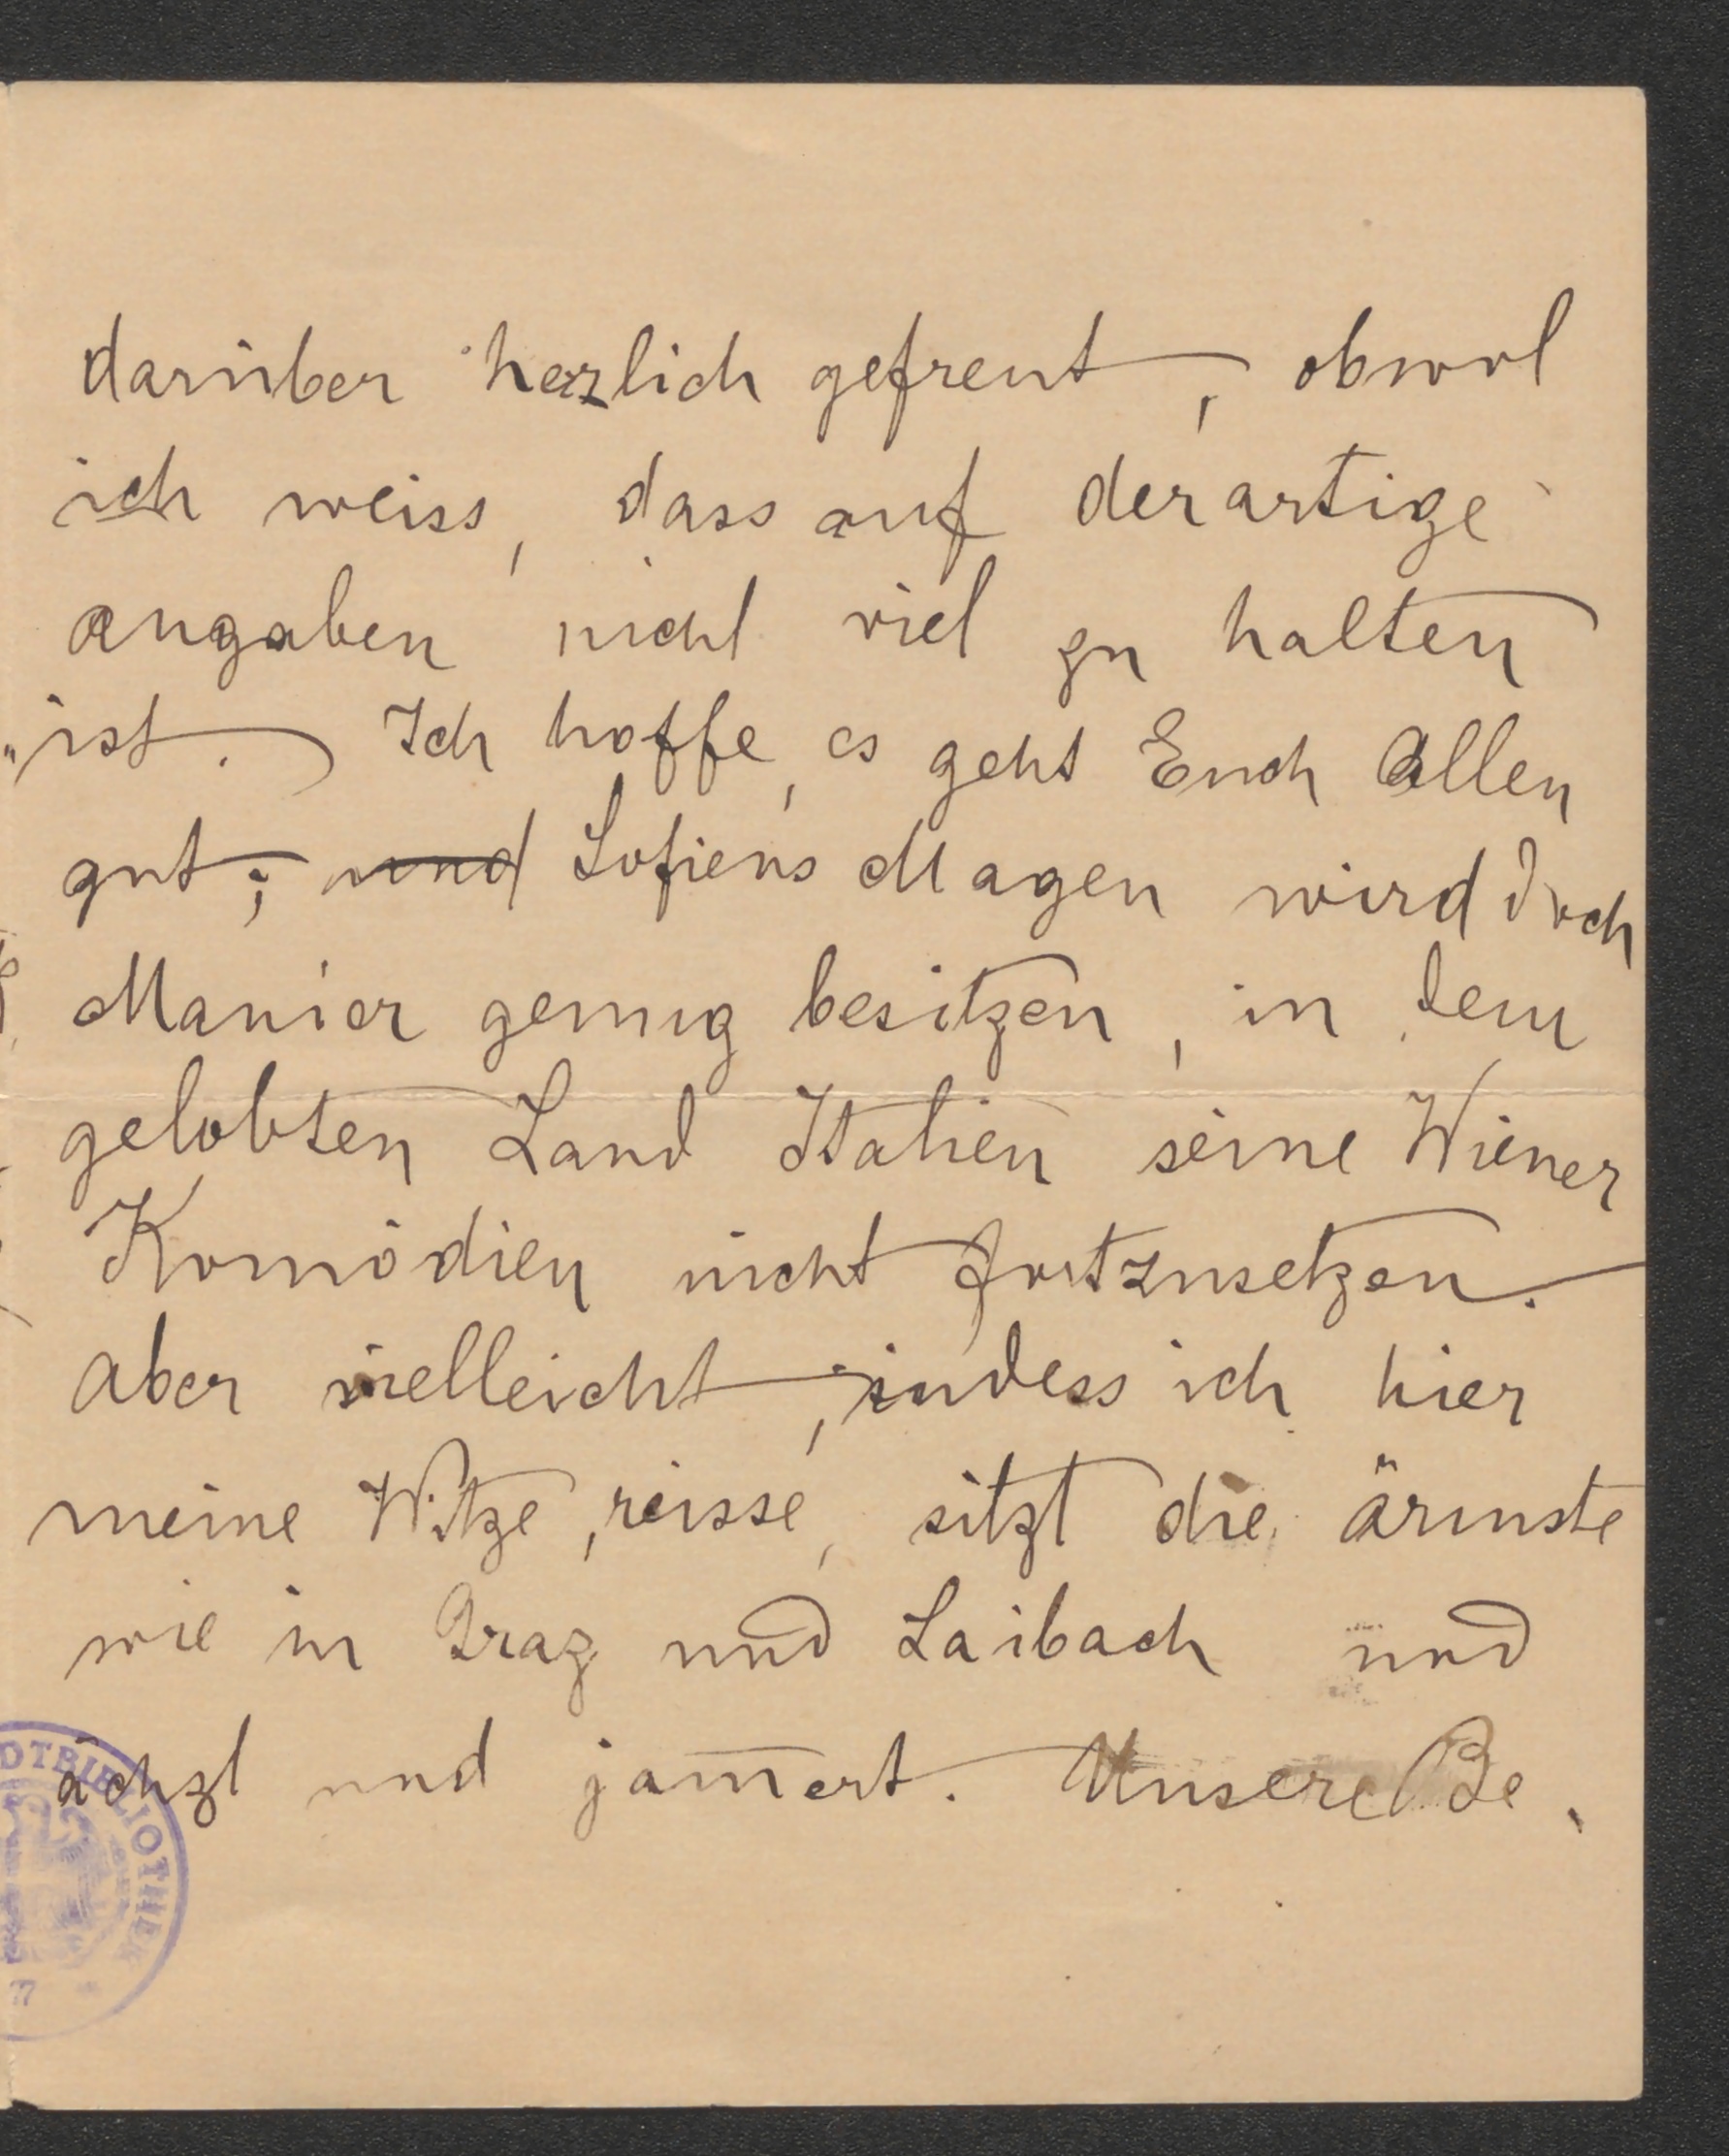 darüber herzlich gefreut, obwol
ich weiss, dass auf derartige
Angaben nicht viel zu halten
ist. Ich hoffe, es geht Euch Allen
gut; und Sofiens Magen wird doch
Manier genug besitzen, in dem
gelobten Land Italien seine Wiener
Komödien nicht fortzusetzen.
Aber vielleicht, indess ich hier
meine Witze reisse, sitzt die ärmste
wie in Graz und Laibach und
ächzt und jam̄ert. Unsere Be
DTBIBLIOTHEK
77